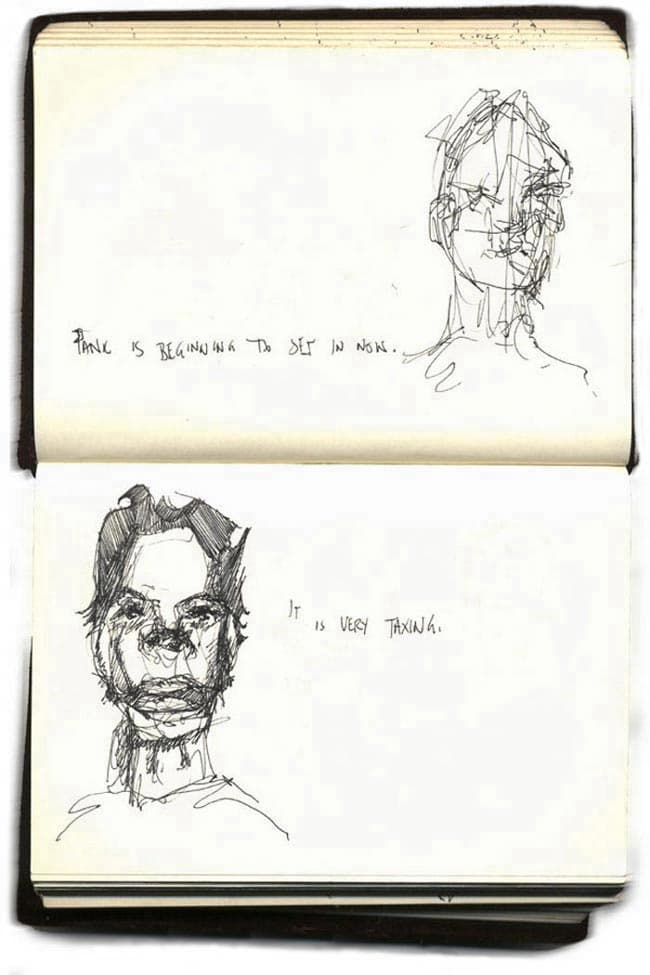 PANIC IS BEGINNING TO SET IN NOW.
IT IS VERY TAXING.